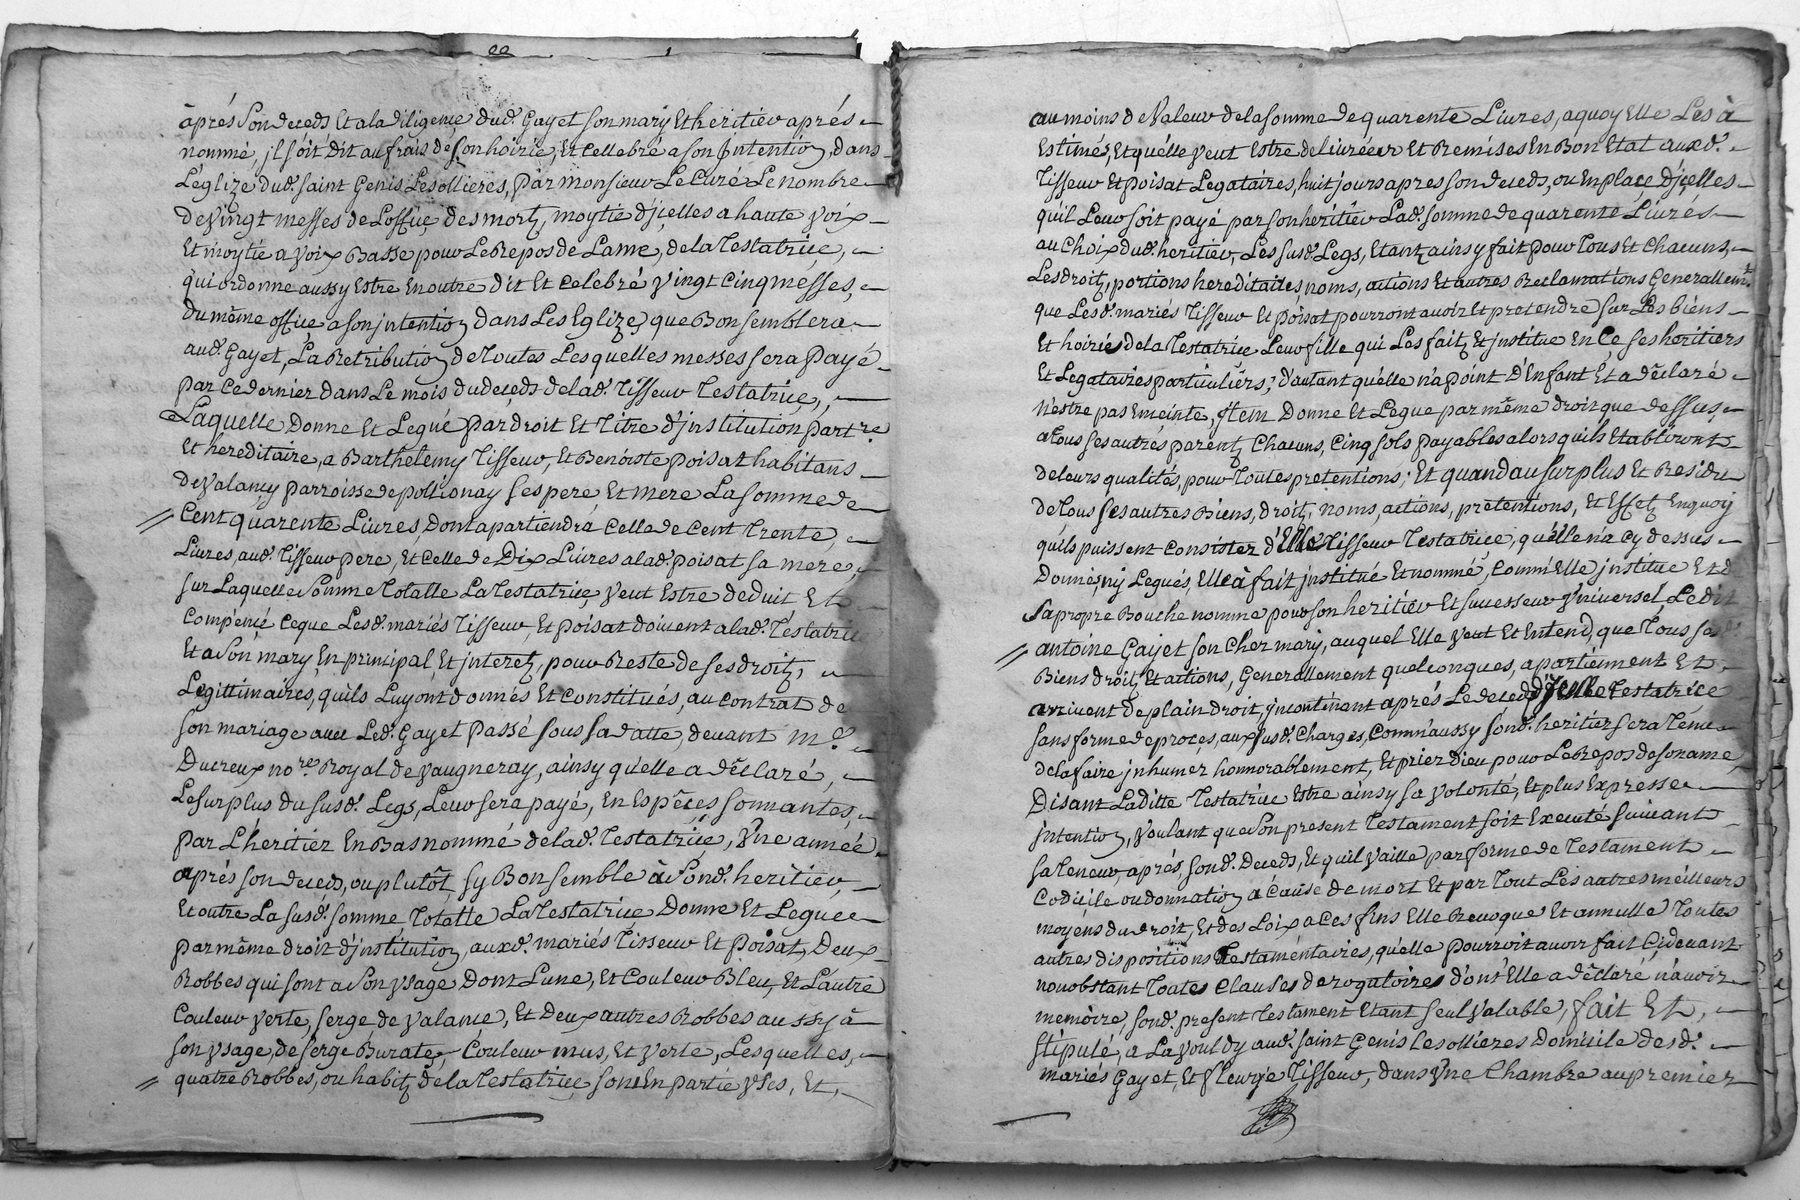 après Son deceds Et a la diligence dud. Gayet son mary Et heritier après
nommé, jl soit dit au frais de son hoirie, Et cellebré a son Jntention, dans
L'églize dud. saint Genis Lesollieres, par Monsieur Le Curé Le nombre
de vingt messes de L'office des mortz, moytié d'jcelles a haute voix
Et moytié a voix Basse pour Le Repos de L'ame, de la Testatrice,
qui ordonne aussy Estre En outre dit Et celebré vingt cinq messes,
du même office a son jntention dans Les Eglizes que Bon semblera
aud. Gayet, La Retribution de Toutes Lesquelles messes sera payé
par ce dernier dans Le mois du deceds de lad. Tisseur Testatrice,
Laquelle Donne Et Legue par droit Et Titre d'jnstitution partre
Et hereditaire, a Barthelemy Tisseur, Et Benoiste poisat habitans
de valancy parroisse de pollionay ses pere Et mere La somme de
Cent quarente Livres, dont apartiendra celle de cent Trente,
Livres, aud. Tisseur pere, Et celle de Dix Livres a lad. poisat sa mere,
sur Laquelle somme Totalle La Testatrice veut Estre deduit Et
Compencé ceque Lesd. mariés Tisseur, Et poisat doivent a lad. Testatrice
Et a son mary En principal Et jnteretz, pour Reste de ses droitz,
Legittimaires, quils Luy ont donnés Et constitués, au contrat de
son mariage avec Led. Gayet passé sous sa datte, devant me.
Ducreux nore. Royal de vaugneray, ainsy qu'elle a déclaré,
Le surplus du susd. Legs, Leur sera payé, En Espèces sonnantes,
par L'heritier En Bas nommé de lad. Testatrice, vne année
après son deceds, ou plutôt, sy Bon semble à sond. heritier,
Et outre La susd. somme Totalle La Testatrice Donne Et Legue
par même droit d'jnstitution, auxd. mariés Tisseur Et Poisat, Deux
Robbes qui sont a son vsage dont L'une, Et Couleur Bleu, Et L'autre
Couleur verte, serge de valance, Et deux autres Robbes aussy à
son vsage, de serge Burate, Couleur mus, Et verte, Lesquelles,
quatre Robbes, ou habitz de la Testatrice, sont En partie vsés, Et,
au moins de valeur de la somme de quarente Livres, a quoy Elle Les à
Estimés, Et qu'elle veut Estre delivréer Et Remises En Bon Etat auxd.
Tisseur Et poisat Legataires, huit jours apres son deceds, ou En place d'jcelles
qu'il Leur soit payé par son heritier Lad. somme de quarente Livres
au Choix dud. heritier, Les susd. Legs, Etant ainsy fait pour Tous Et Chacuns,
Les droitz, portions hereditaires, noms, actions Et autres Reclamations Generallemt.
que Lesd. mariés Tisseur Et poisat pourront avoir Et pretendre sur Les biens
Et hoiries de la Testatrice Leur fille qui Les fait, Et jnstitue En Ce ses heritiers
Et Legataires particuliers; d'autant qu'elle n'a point d'Enfant Et a déclaré
N'estre pas Enceinte, jtem Donne Et Legue par même droit que dessus,
a Tous ses autres parentz Chacuns, Cinq sols payables alors quils Etabliront
de Leurs qualités, pour Toutes pretentions; Et quand au surplus Et Residu
de Tous ses autres Biens, droitz, noms, actions, pretentions, Et Effetz Enquoy
quils puissent consister d'Elle Tisseur Testatrice, qu'elle n'a cy dessus
Donnés, ny Legués, Elle à fait jnstitué Et nommé, Comm'Elle jnstitue Et d
Sa propre Bouche nomme pour son heritier Et successeur vniversel, Le dit
antoine Gayet son Cher mary, auquel Elle veut Et Entend, que Tous sesd.
Biens droitz Et actions, Generallement quelconques, apartiennent Et
arrivent de plain droit, jncontinent après Le deceds d'jcelle Testatrice
sans forme de proces, aux susd. Charges, Comm'aussy sond. heritier sera Tenu
de la faire jnhumer honnorablement, Et prier Dieu pour Le Repos de son ame,
Disant Laditte Testatrice Estre ainsy sa volonté, Et plus Expresse
jntention, voulant que son present Testament soit Executé suivant
sa Teneur, après, sond. Deceds, Et qu'il vaille par forme de Testament
Codicile ou donnation a Cause de mort Et par Tout Les autres meilleurs
moyens du droit, Et des Loix a Ces fins Elle Revoque Et annulle Toutes
autres dispositions Testamentaires, qu'elle pourroit avoir fait Cidevant
nonobstant Toutes Clauses derogatoires d'ont Elle a déclaré n'avoir
memoire, sond. present Testament Etant seul valable, fait Et,
stipulé, a La vouldy aud. saint Genis Lesollieres Domicile desd.
mariés Gayet, Et fleurye Tisseur, dans vne Chambre au premier